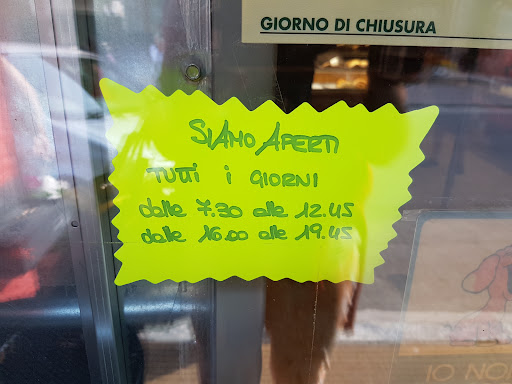 GIORNO DI CHIUSURA
SIAMO APERTI
TUTTI i GIORNI
dalle 7.30 alle 12.45
dalle 16.00 alle 19.45
IO NO